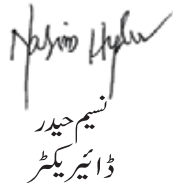 Nasim Hyder
نسیم حیدر
ڈائیریکٹر